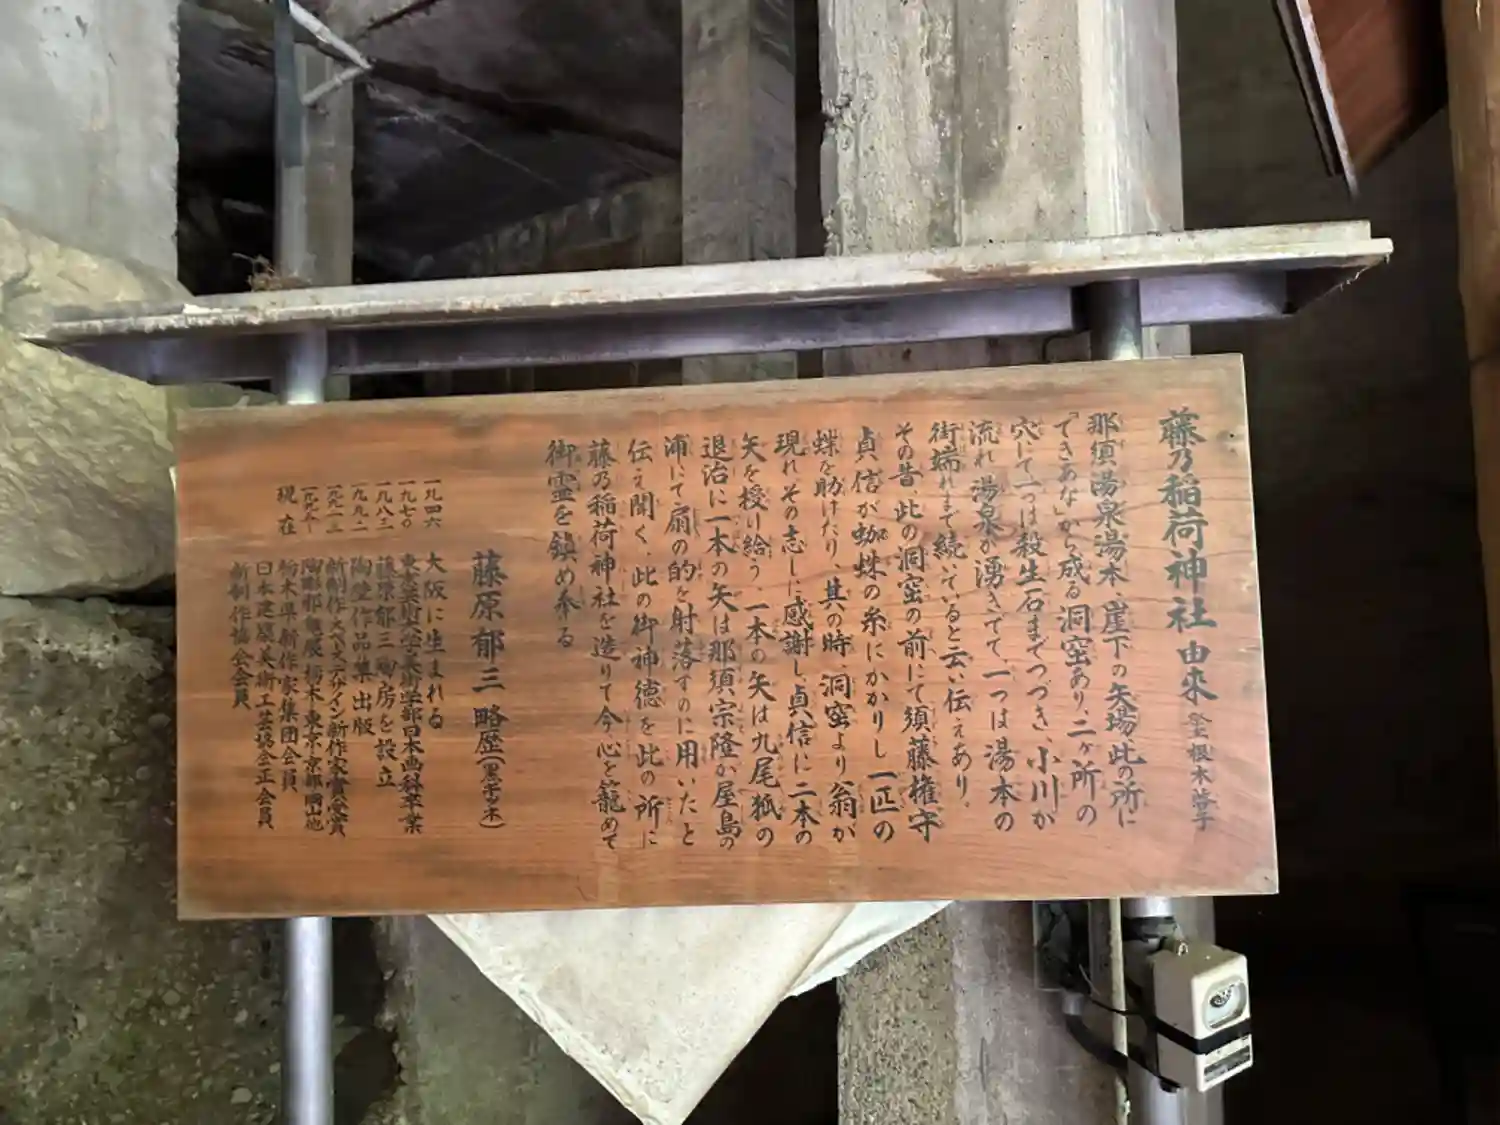 藤乃稲荷神社由来
那須湯泉湯本、崖下の矢場此の所に
「できあな」から成る洞窟あり、二ヶ所の
穴にて一つは殺生石までつづき、小川が
流れ湯泉が湧きでて、一つは湯本の
街端れまで続いていると云い伝えあり。
その昔、此の洞窟の前にて須藤権守
貞信が蜘蛛の糸にかかりし一匹の
蝶を助けたり、其の時、洞窟より翁が
現れその志しに感謝し貞信に二本の
矢を授け給う、一本の矢は九尾狐の
退治に一本の矢は那須宗隆が屋島の
浦にて扇の的を射落すのに用いたと
伝え聞く、此の御神徳を此の所に
藤乃稲荷神社を造りて今心を籠めて
御霊を鎮め奉る
藤原郁三 略歴
一九四六 大阪に生まれる
一九七〇 東京芸術大学美術学部日本画科卒業
一九八二 藤原郁三陶房を設立
一九九二 陶壁作品集出版
新制作スペースデザイン新作家賞受賞
陶彫郁無展・栃木・東京・京都・岡山他
現在 栃木県新作家集団会員
日本建築美術工芸協会正会員
新制作協会会員